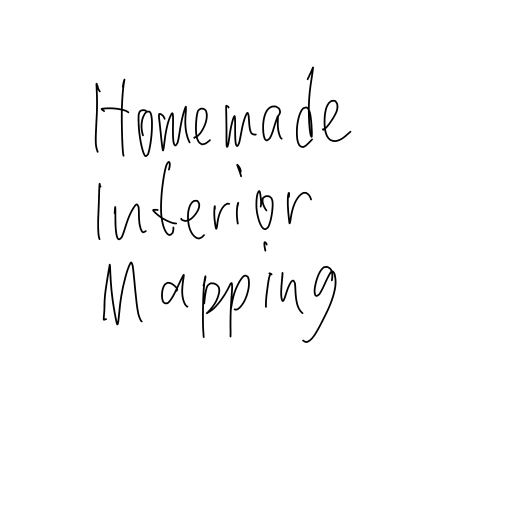 Homemade
Interior
Mapping